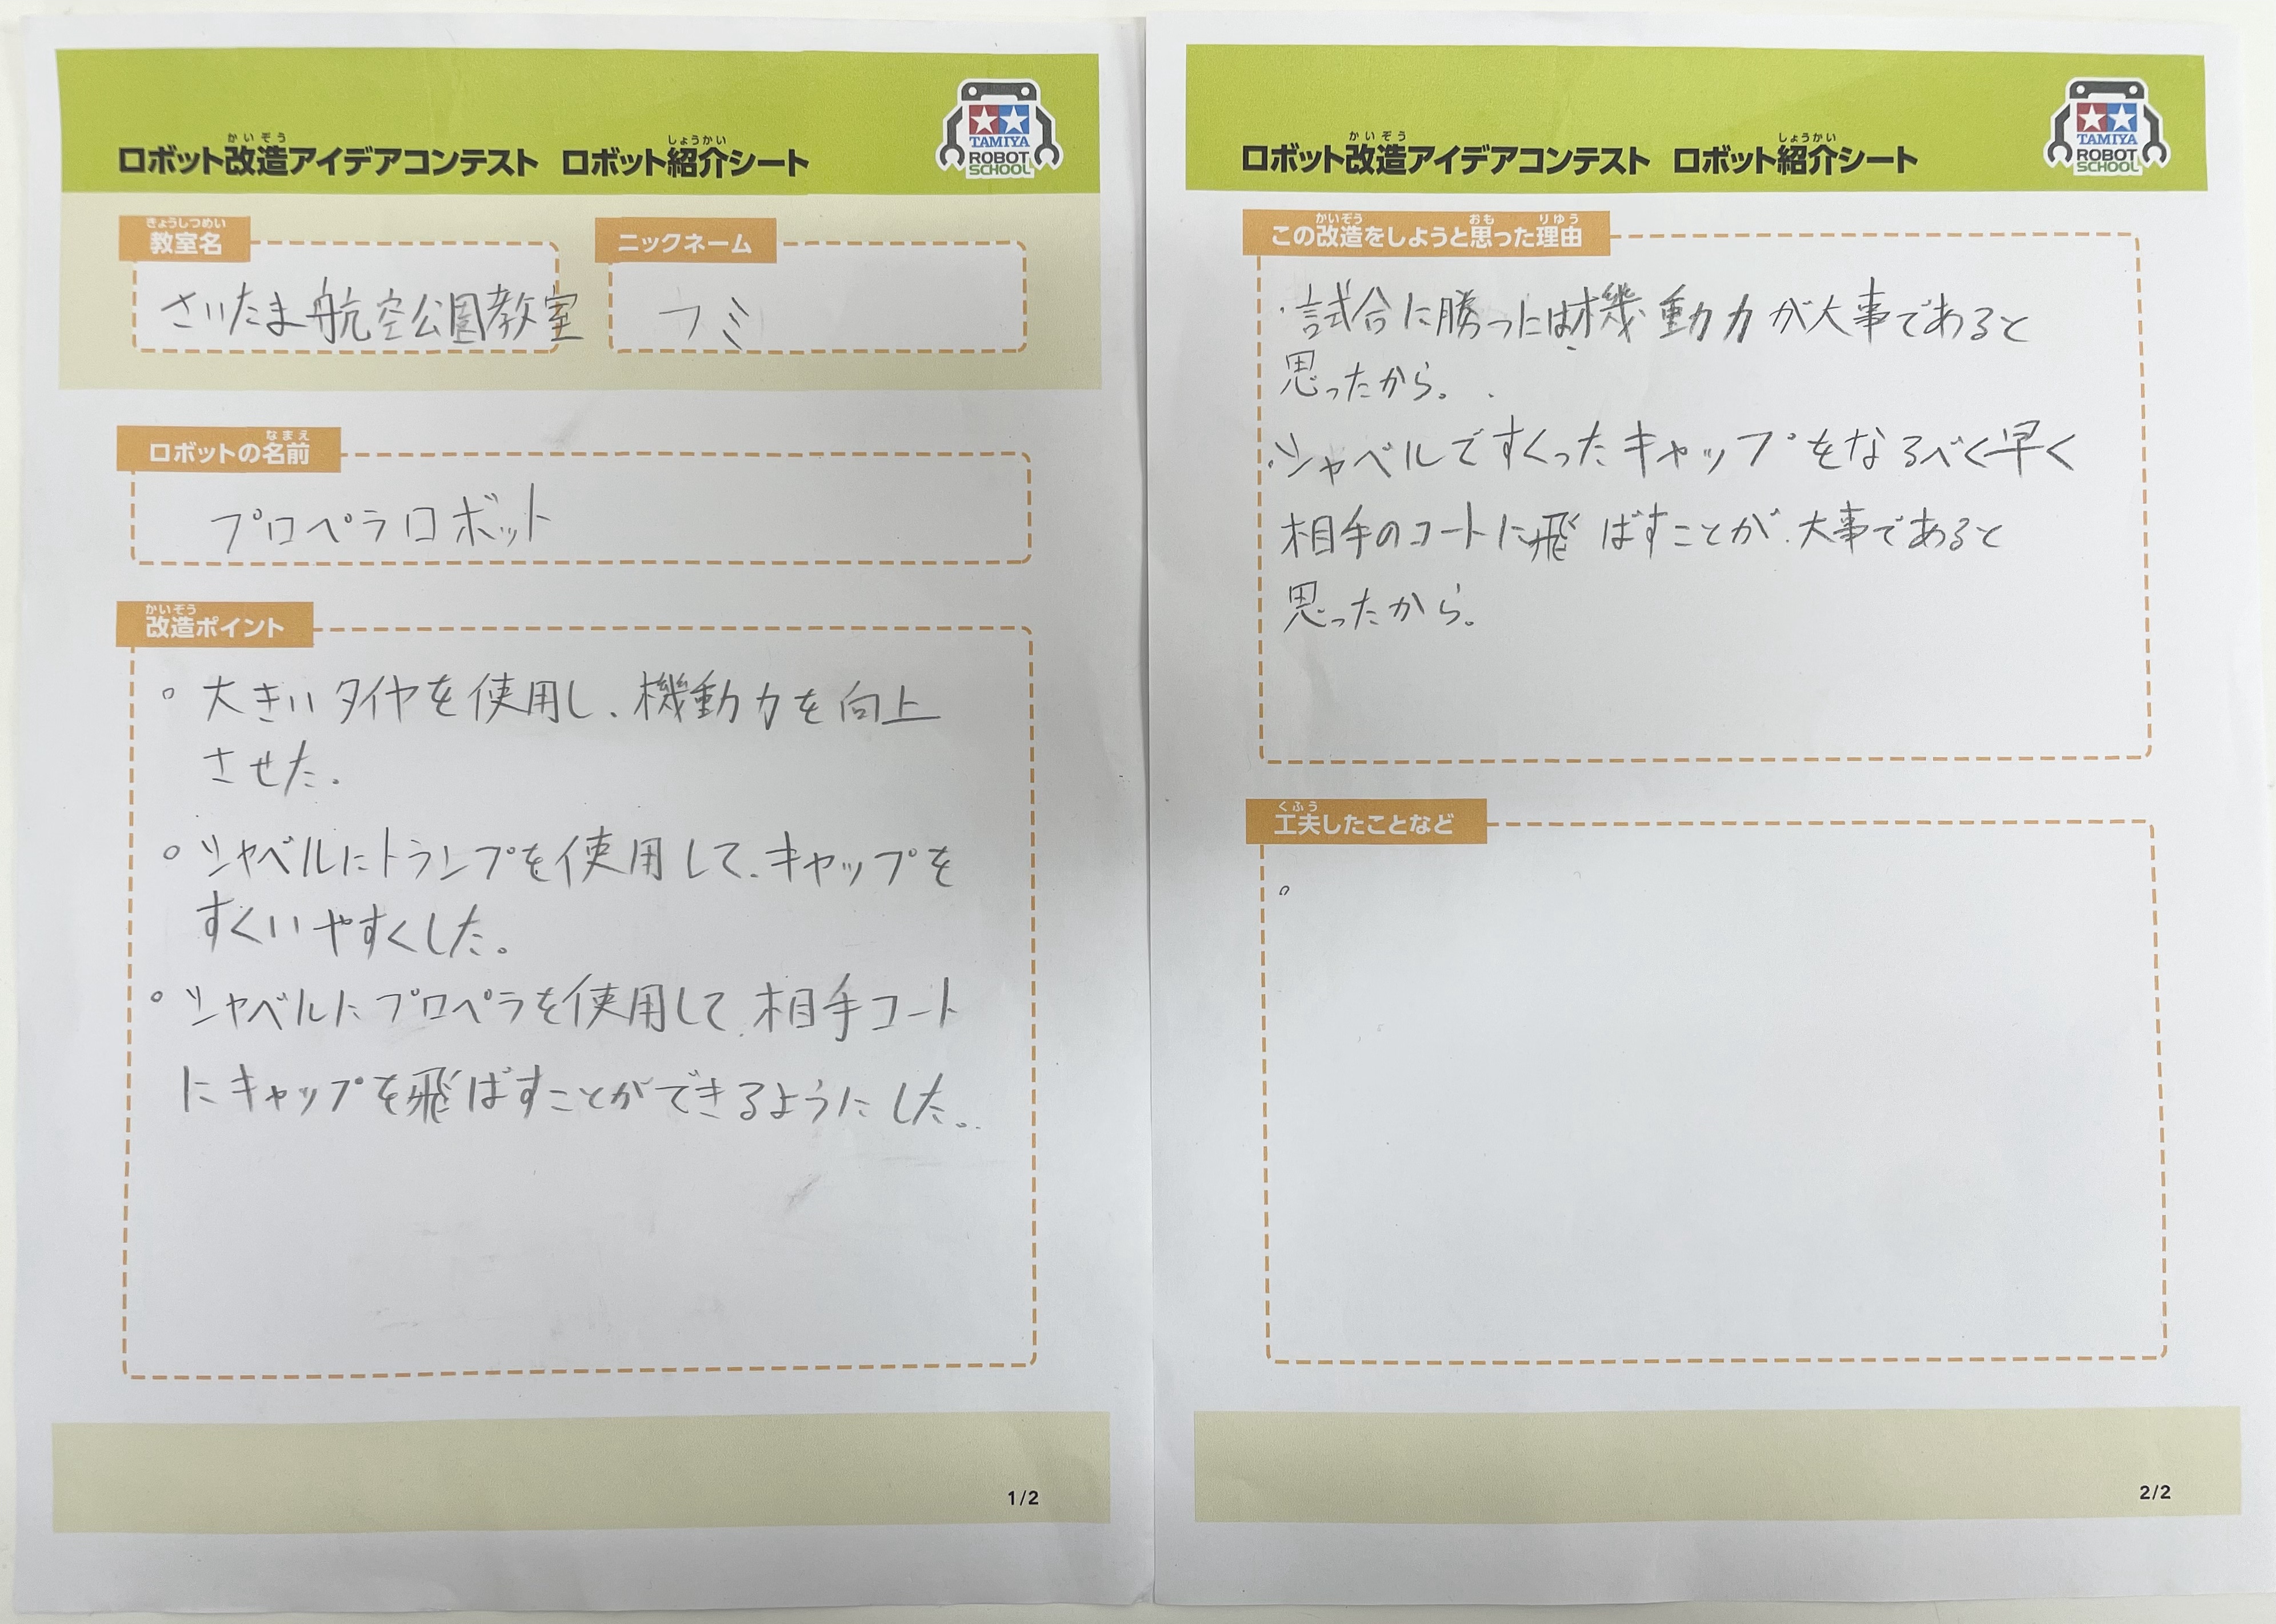 かいぞう しょうかい
ロボット改造アイデアコンテスト ロボット紹介シート
TAMIYA
ROBOT
SCHOOL
きょうしつめい
教室名
さいたま航空公園教室
ニックネーム
フミ
なまえ
ロボットの名前
プロペラロボット
かいぞう
改造ポイント
。大きいタイヤを使用し、機動力を向上
させた。
。シャベルにトランプを使用して、キャップを
すくいやすくした。
。シャベルにプロペラを使用して、相手コート
にキャップを飛ばすことができるようにした。
1/2
かいぞう しょうかい
ロボット改造アイデアコンテスト ロボット紹介シート
TAMIYA
ROBOT
SCHOOL
かいぞう おも りゆう
この改造をしようと思った理由
・試合に勝つには機動力が大事であると
思ったから。
・シャベルですくったキャップをなるべく早く
相手のコートに飛ばすことが、大事であると
思ったから。
くふう
工夫したことなど
。
2/2